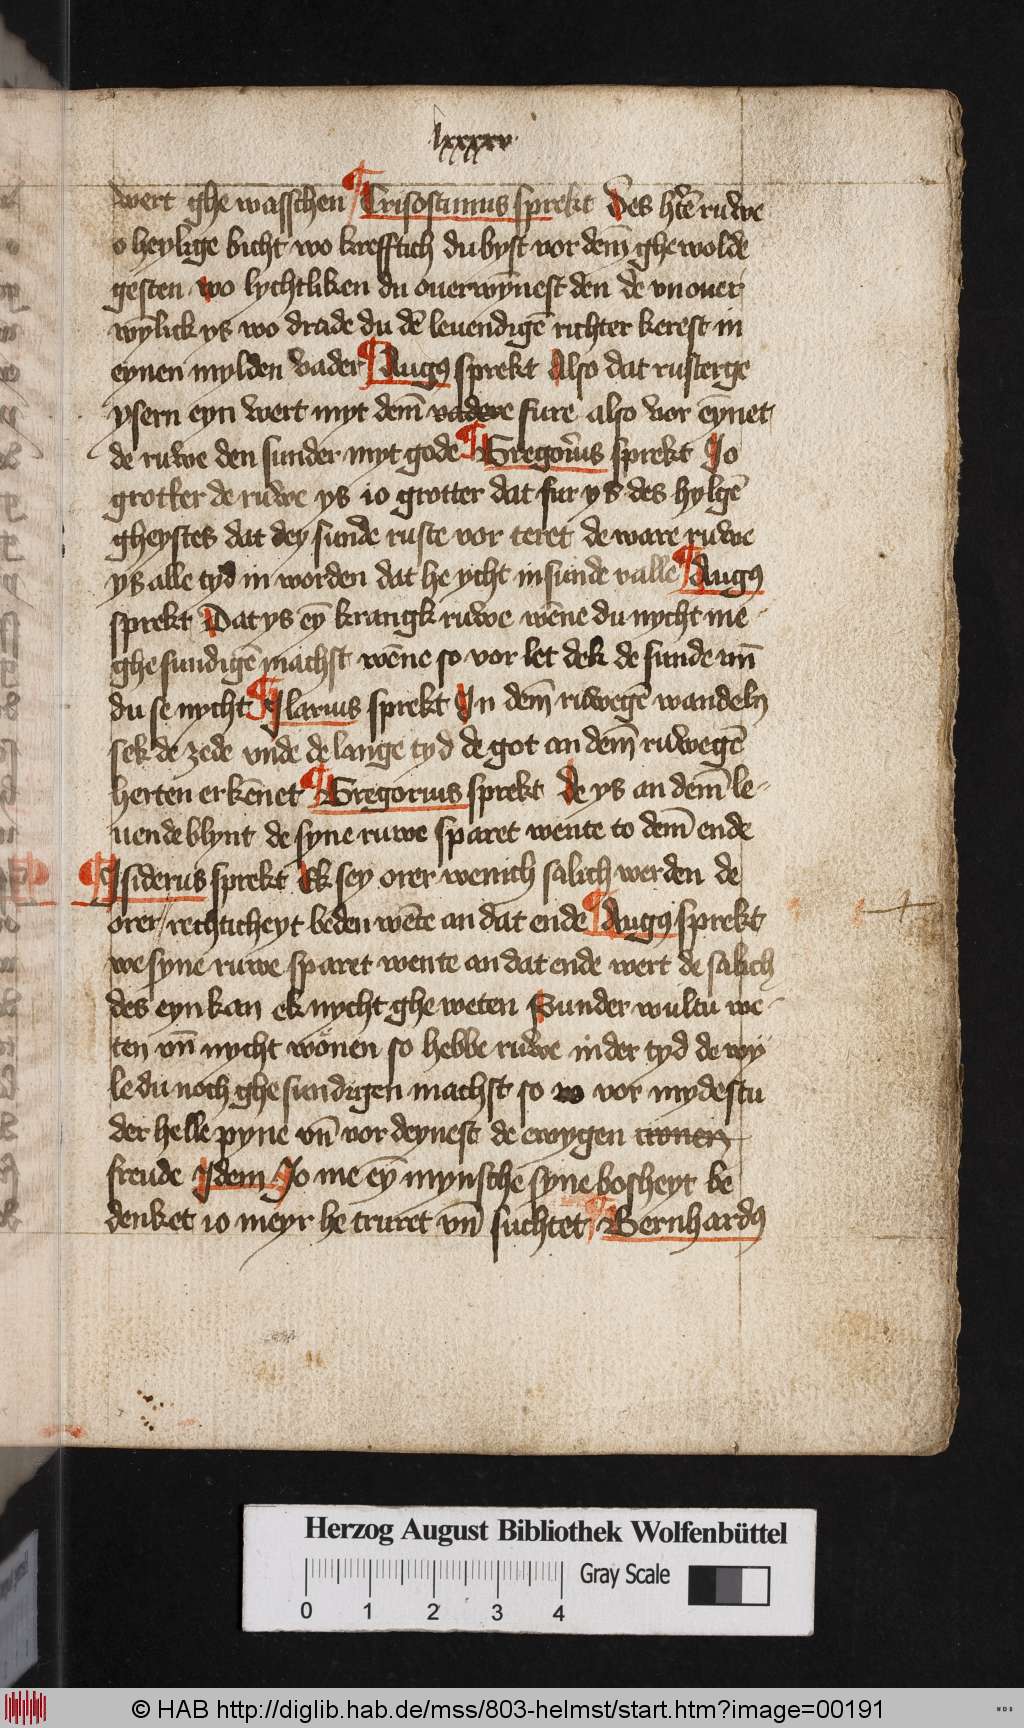 lxxxxv
wert ghe wasschen ¶ Crisostimus sprekt Des hʼtē ruwe
o heylige bicht wo krefftich du byst vor dem̄ ghe wolde
gesten wo lychtliken du ouerwynest den de vnouer
wylick ys wo drade du dē leuendigē richter kerest in
eynen mylden vader ¶ Augꝰ sprekt Also dat rusterge
ysern eyn wert myt dem̄ vadere fure also vor eynet
de ruwe den sunder myt gode ¶ Gregorius sprekt Jo
grotker de ruwe ys io grotter dat fur ys des hylgē
gheystes dat dey sunde ruste vor teret de ware ruwe
ys alle tyd in worden dat he ycht in sunde valle ¶ Augꝰ
sprekt Dat ys eȳ krangk ruwe wēne du nycht me
ghe sundigē machst wēne so vor let dek de sunde vn̄
du se nycht ¶ Jlarius sprekt Jn dem̄ ruwegē wandeln
sek de zede vnde de lange tyd de got an dem̄ ruwegē
herten erkēnet ¶ Gregorius sprekt De ys an dem̄ le
uende blynt de syne ruwe sparet wente to dem̄ ende
¶ Jsiderus sprekt Ek sey orer wenich salich werden de
orer rechticheyt beden wēte an dat ende ¶ Augꝰ sprekt
we syne ruwe sparet wente an dat ende wert de salich
des eyn kan ek nycht ghe weten Sunder wultu we
ten vn̄ nycht wönen so hebbe ruwe in der tyd de wy
le du noch ghe sundigen machst so vor mydestu
der helle pyne vn̄ vor deynest de ewygen tronen
freude Jdem Jo me eȳ mynsche syne bosheyt be
denket io meyr he truret vn̄ suchtet ¶ Bernhardꝰ
Herzog August Bibliothek Wolfenbüttel
Gray Scale
0 1 2 3 4
© HAB http://diglib.hab.de/mss/803-helmst/start.htm?image=00191